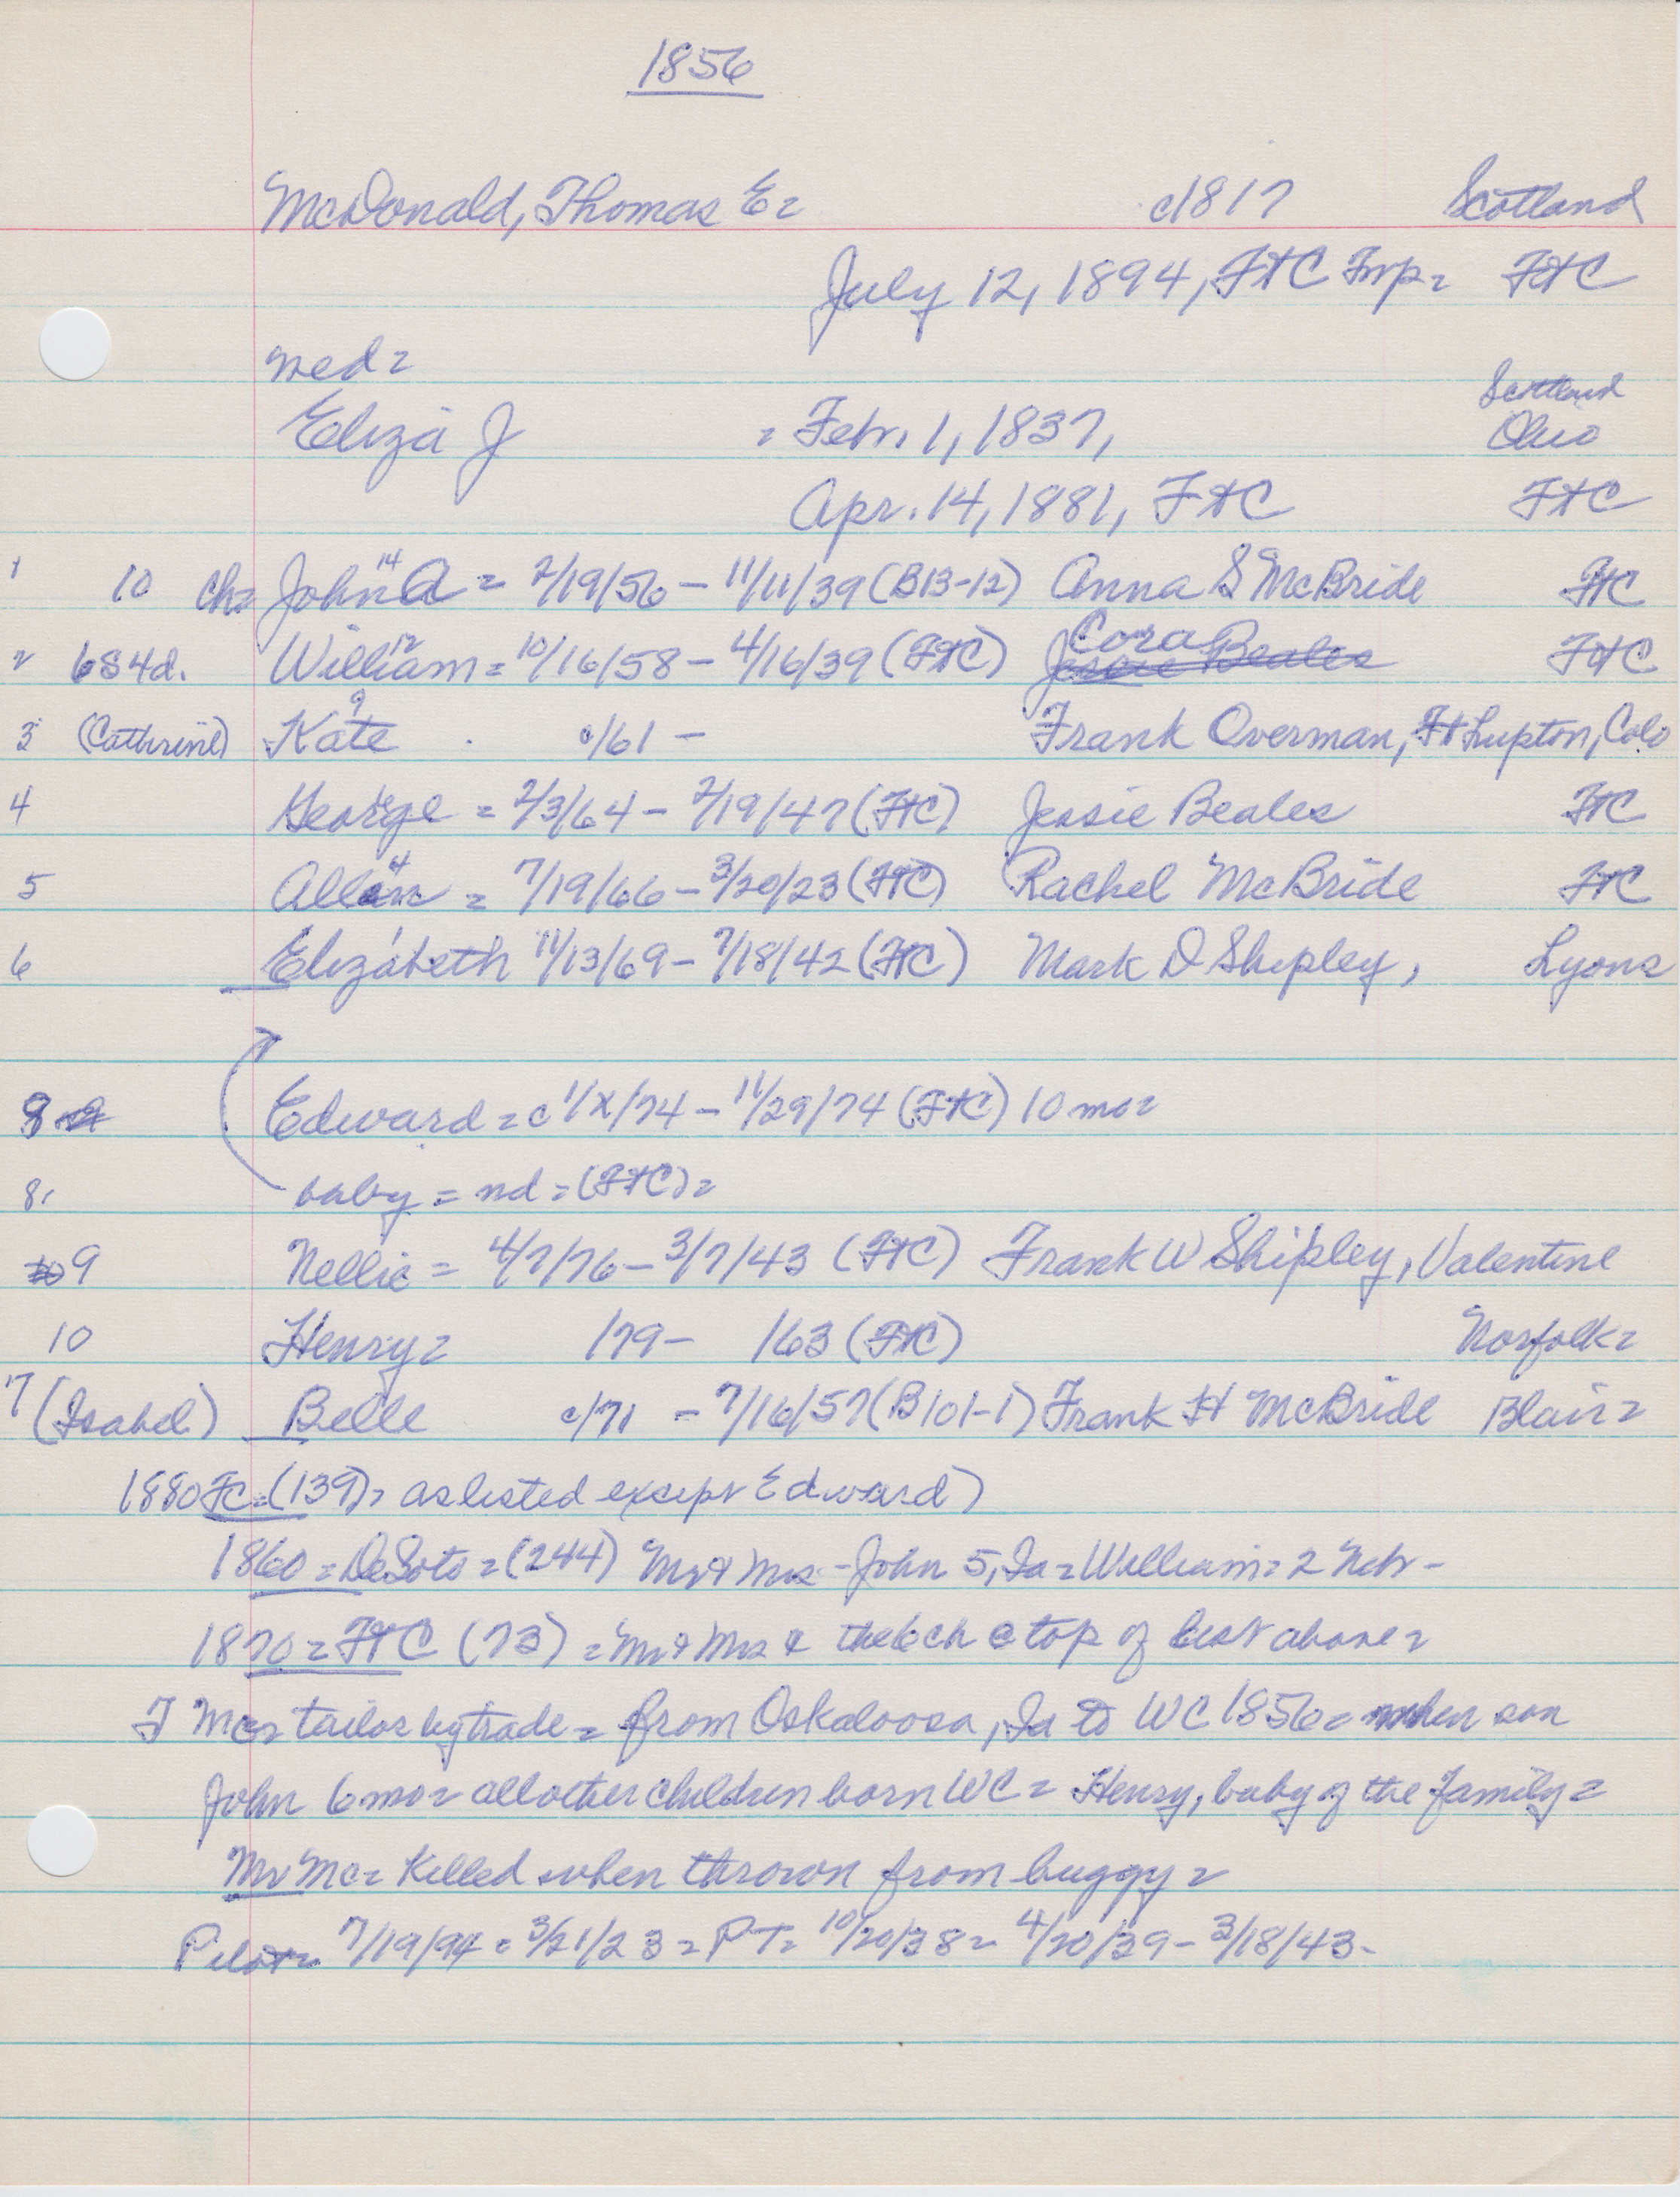 1856
McDonald, Thomas E= c1817 Scotland
July 12, 1894, FtC Twp= FtC
med=
Scotland
Eliza J = Febr. 1, 1837, Ohio
Apr. 14, 1881, FtC FtC
1 10 ch= John 14 A = 2/19/56 - 11/11/39 (B13-12) Anna S McBride FtC
2 6s4d. William 12 = 10/16/58 - 4/16/39 (FtC) Cora Jessie Beales FtC
3 (Cathrine) Kate 9 c/61 - Frank Overman, Ft Lupton, Colo
4 George = 2/3/64 - 2/19/47 (FtC) Jessie Beales FtC
5 Allan 4 = 7/19/66 - 3/20/23 (FtC) Rachel McBride FtC
6 Elizabeth 1 11/13/69 - 7/18/42 (FtC) Mark D Shipley, Lyons
9 Edward = c 1/x/74 - 11/29/74 (FtC) 10 mo=
8. baby = nd = (FtC) =
9 Nellie = 4/7/76 - 3/7/43 (FtC) Frank W Shipley, Valentine
10 Henry= /79 - /63 (FtC) Norfolk=
7 (Isabel) Belle c/71 - 7/16/57 (B101-1) Frank H McBride Blair=
1880 FC = (139) = as listed except Edward)
1860 = DeSoto = (244) Mr & Mrs - John 5, Ia = William = 2 Nebr -
1870 = FtC (73) = Mr & Mrs & the 6 ch @ top of list above=
T Mc= tailor by trade = from Oskaloosa, Ia to WC 1856= when son
John 6 mo= all other children born WC = Henry, baby of the family =
Mr Mc= Killed when thrown from buggy=
Pilot= 7/19/94 = 3/21/23 = PT= 10/20/38 = 4/20/39 - 3/18/43-